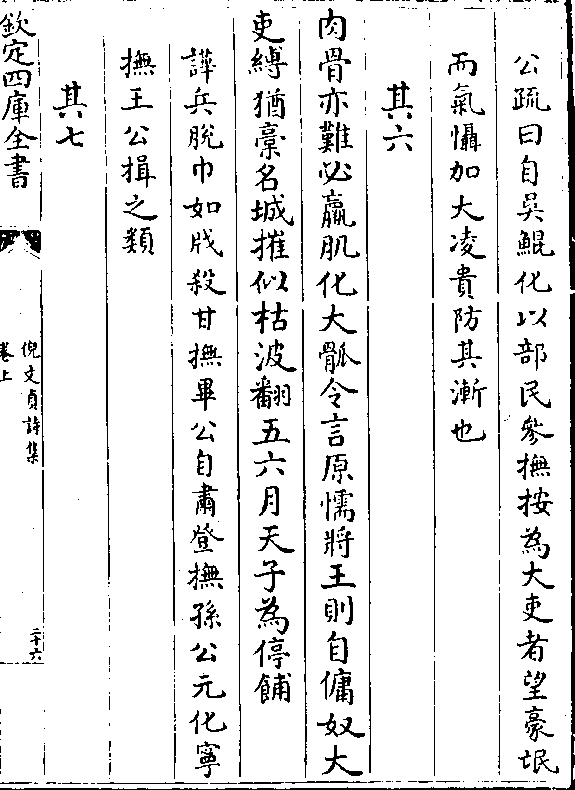 公疏曰自吳鯤化以部民參撫按為大吏者望豪氓
而氣懾加大凌貴防其漸也
其六
肉骨亦難必羸肌化大瓠令言原懦將王則自傭奴大
吏縛猶稾名城摧似枯波翻五六月天子為停餔
譁兵脫巾如戕殺甘撫畢公自肅登撫孫公元化寧
撫王公揖之類
其七
欽定四庫全書
倪文貞詩集
卷上
二十六